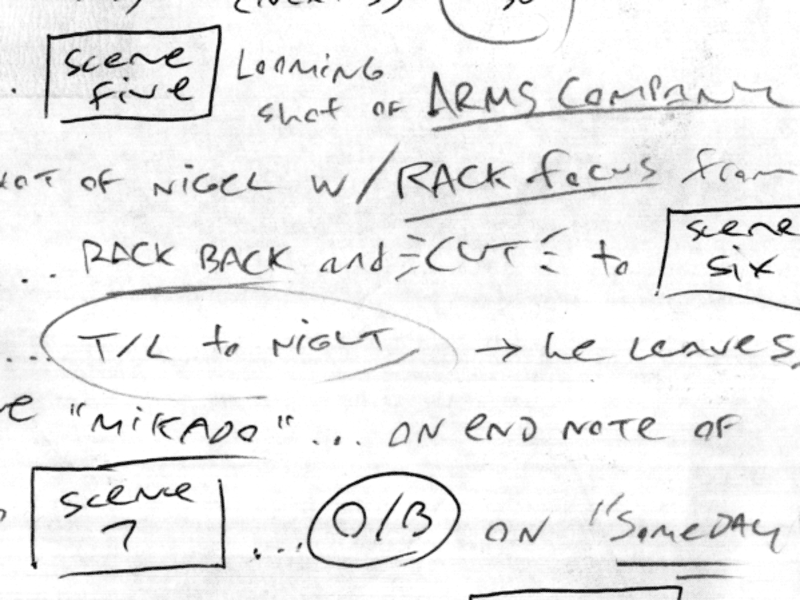 scene five Looming shot of ARMS COMPANY
OF NIGEL W/ RACK focus from
.. RACK BACK and =CUT= to scene six
.... T/L to NIGHT → he leaves,
"MIKADO" ... ON END NOTE OF
scene 7 ... O/B ON "SOMEDAY